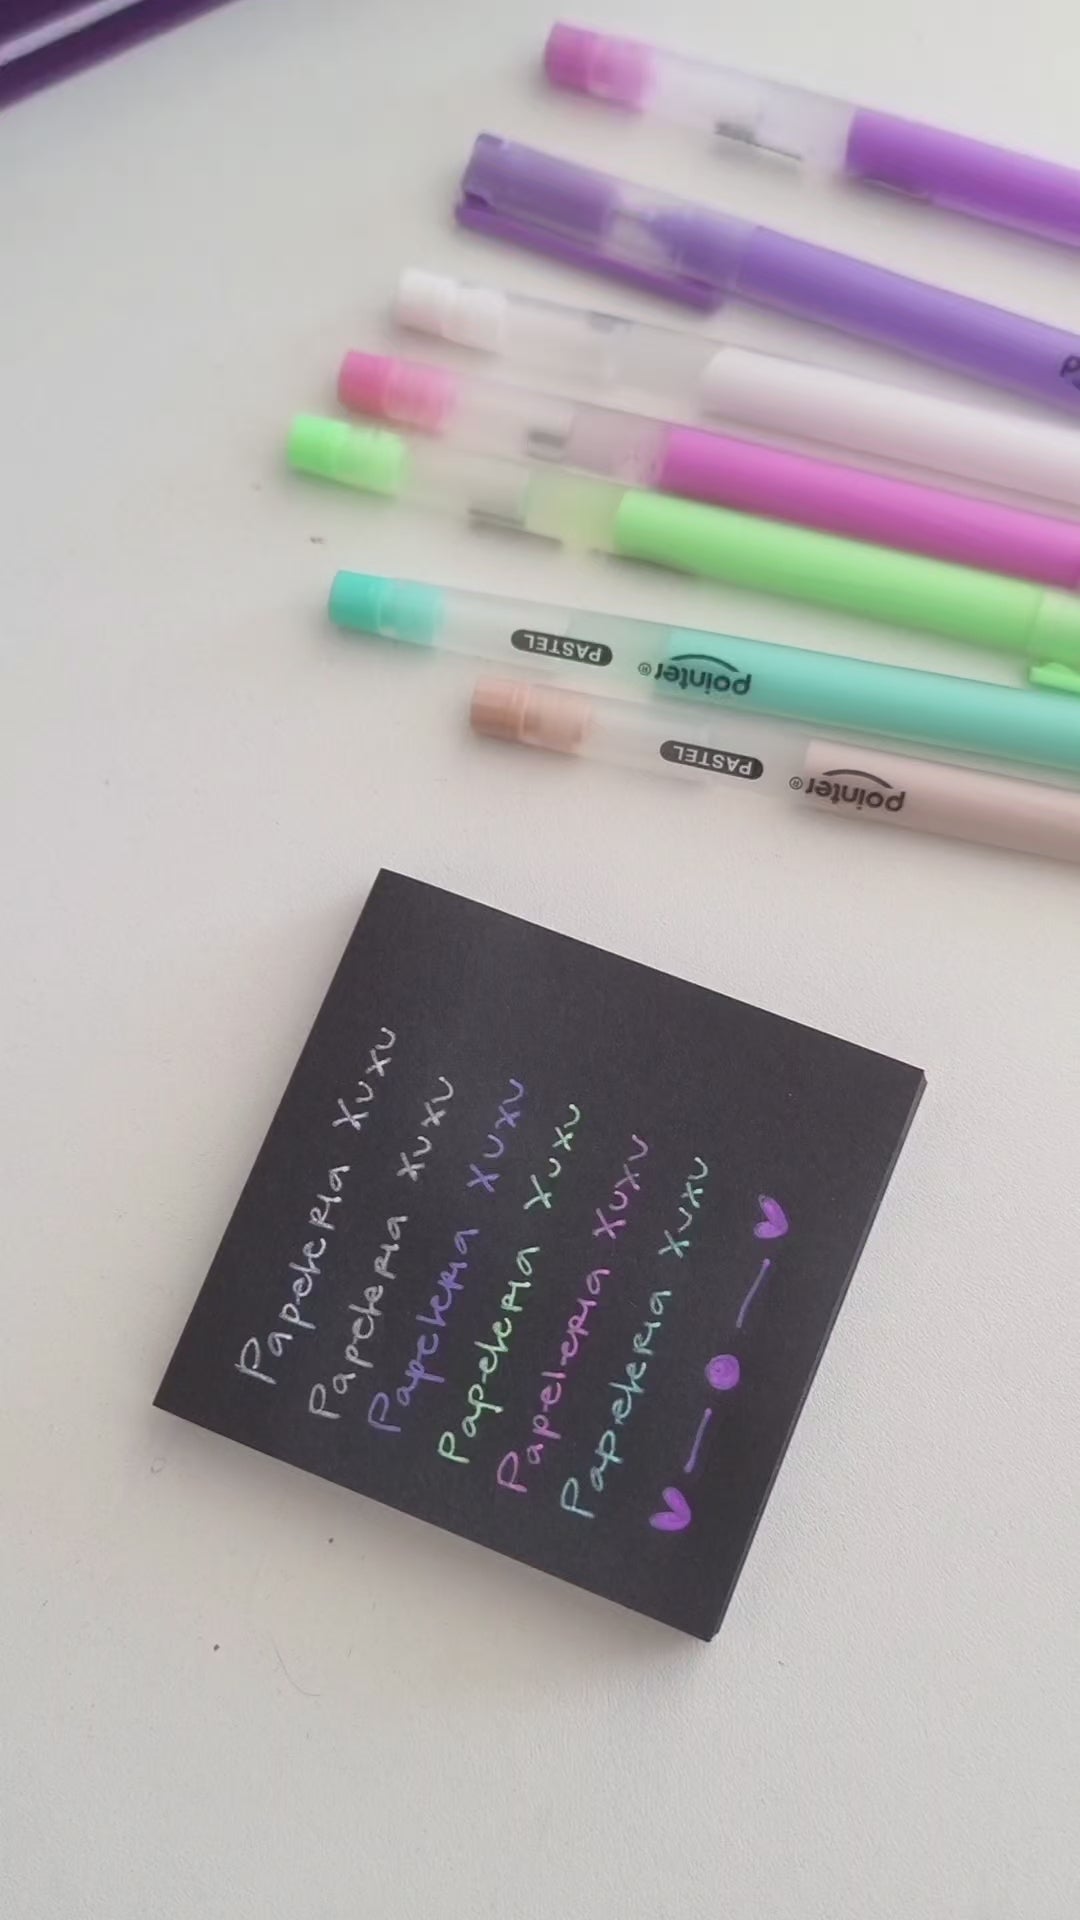 PASTEL
pointer®
PASTEL
pointer®
Papeleria Xuxu
Papeleria Xuxu
Papeleria Xuxu
Papeleria Xuxu
Papeleria Xuxu
Papeleria Xuxu